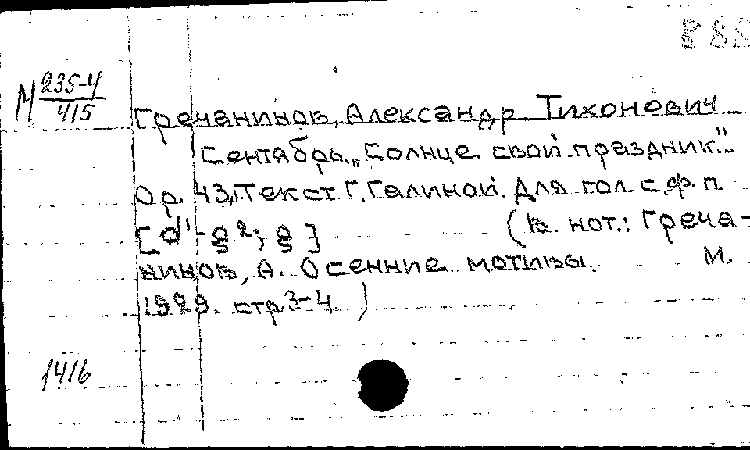 М 235-4
415
Гречанинов, Александр Тихонович
Сентябрь. „Солнце свой праздник..."
Ор. 43, Текст Г. Галиной. Для гол. с ф.п.
[d¹-g²; g] (В нот.: Греча-
нинов, А. Осенние мотивы. М.
1929. стр 3-4.)
1416